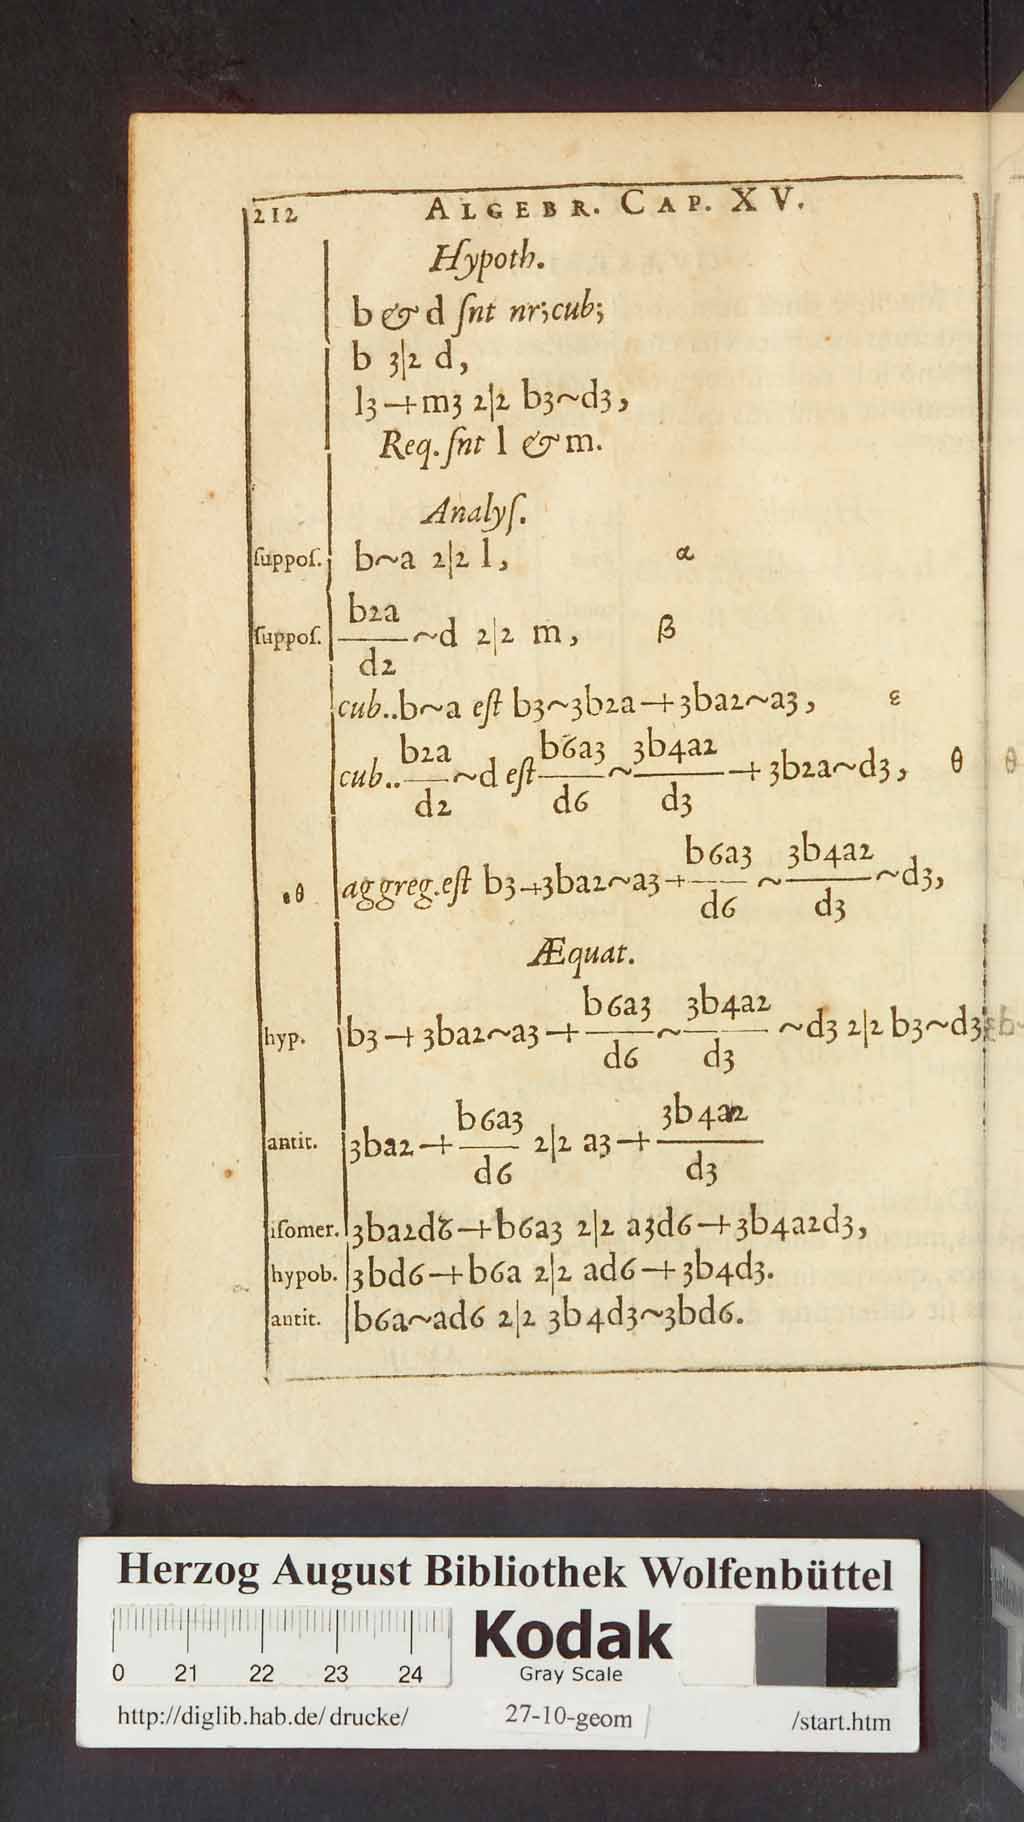 212 ALGEBR. CAP. XV.
Hypoth.
b & d ſnt nr; cub;
b 3|2 d,
l3+m3 2|2 b3~d3,
Req. ſnt l & m.
Analyſ.
ſuppoſ. b~a 2|2 l, α
ſuppoſ. b2a/d2 ~d 2|2 m, β
cub..b~a eſt b3~3b2a+3ba2~a3, ε
cub.. b2a/d2 ~d eſt b6a3/d6 ~ 3b4a2/d3 + 3b2a~d3, θ
θ aggreg.eſt b3+3ba2~a3+ b6a3/d6 ~ 3b4a2/d3 ~d3,
Æquat.
hyp. b3+3ba2~a3+ b6a3/d6 ~ 3b4a2/d3 ~d3 2|2 b3~d3
antit. 3ba2+ b6a3/d6 2|2 a3+ 3b4a2/d3
iſomer. 3ba2d6+b6a3 2|2 a3d6+3b4a2d3,
hypob. 3bd6+b6a 2|2 ad6+3b4d3.
antit. b6a~ad6 2|2 3b4d3~3bd6.
Herzog August Bibliothek Wolfenbüttel
0 21 22 23 24
Kodak
Gray Scale
http://diglib.hab.de/drucke/ 27-10-geom /start.htm